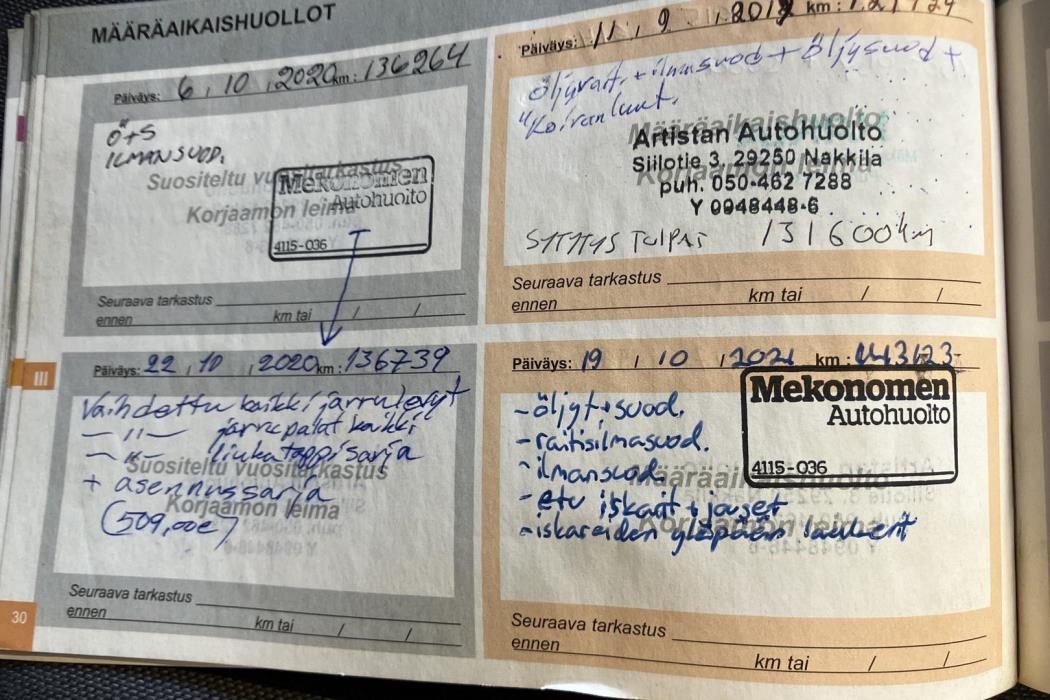 MÄÄRÄAIKAISHUOLLOT
Päiväys: 6 . 10 . 2020 km: 136264
Ö+S
ILMANSUOD.
Suositeltu vuositarkastus
Korjaamon leima
Mekonomen
Autohuolto
4115-036
Seuraava tarkastus
ennen km tai / /
Päiväys: 11 . 9 . 2019 km:
öljynvaiht. + ilmansuod + öljysuod +
"Koiranluut.
Määräaikaishuolto
Korjaamon leima
Artistan Autohuolto
Siilotie 3, 29250 Nakkila
puh. 050-462 7288
Y 0948448-6
SYTYTYS TULPAT 131600km
Seuraava tarkastus
ennen km tai / /
III
Päiväys: 22 . 10 . 2020 km: 136739
Vaihdettu kaikki jarrulevyt
—"— jarrupalat kaikki
—"— liukutappisarja
+ asennussarja
(509,00e)
Suositeltu vuositarkastus
Korjaamon leima
Seuraava tarkastus
ennen km tai / /
Päiväys: 19 / 10 / 2021 km: 143123
Mekonomen
Autohuolto
4115-036
-öljyt+suod.
-raitisilmasuod.
-ilmansuod.
-etu iskarit + jouset
-iskareiden yläpään laakerit
Määräaikaishuolto
Korjaamon leima
Seuraava tarkastus
ennen km tai / /
30